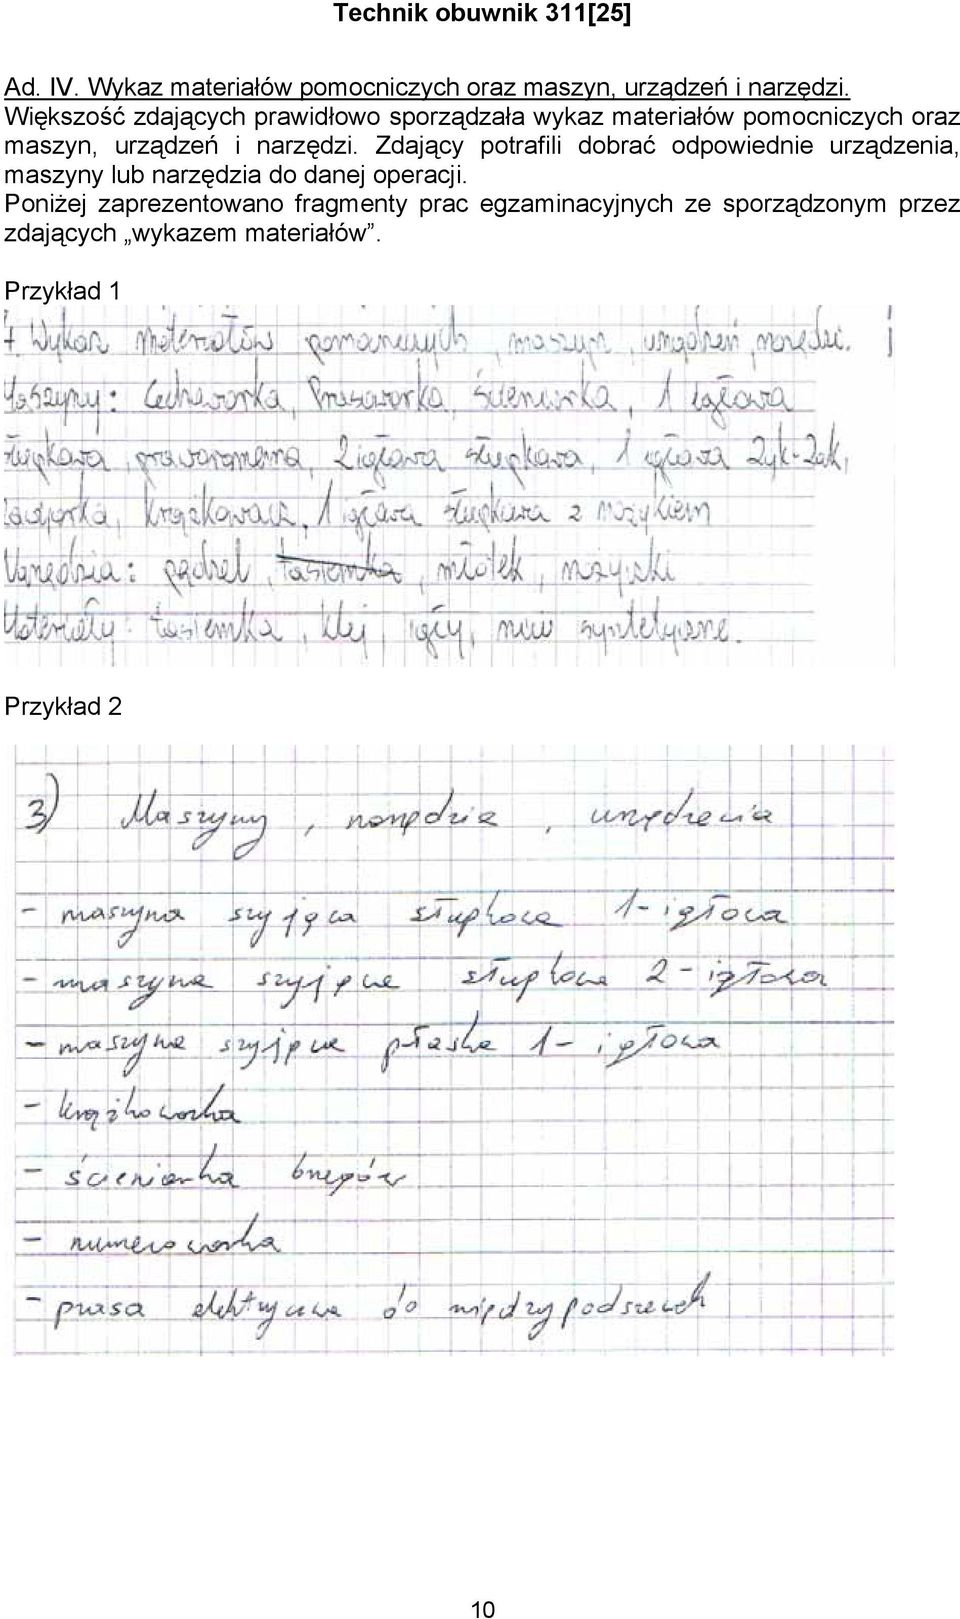 Technik obuwnik 311[25]
Ad. IV. Wykaz materiałów pomocniczych oraz maszyn, urządzeń i narzędzi.
Większość zdających prawidłowo sporządzała wykaz materiałów pomocniczych oraz
maszyn, urządzeń i narzędzi. Zdający potrafili dobrać odpowiednie urządzenia,
maszyny lub narzędzia do danej operacji.
Poniżej zaprezentowano fragmenty prac egzaminacyjnych ze sporządzonym przez
zdających „wykazem materiałów".
Przykład 1
Wykaz materiałów pomocniczych, maszyn, urządzeń, narzędzi.
Maszyny: Cechowarka, Prasowarka, ścieniarka, 1 igłowa
słupkowa, praworamienna, 2 igłowa słupkowa, 1 igłowa Zyk-Zak,
krążkowacz, 1 igłowa słupkowa z nożykiem
Narzędzia: pędzel, tasiemka, młotek, nożyczki
Materiały: tasiemka, klej, igły, nici syntetyczne.
Przykład 2
3) Maszyny, narzędzia, urządzenia
- maszyna szyjąca słupkowa 1-igłowa
- maszyna szyjąca słupkowa 2-igłowa
- maszyna szyjąca płaska 1-igłowa
- krążkowarka
- ścieniarka brzegów
- numerowarka
- prasa elektryczna do międzypodszewek
10